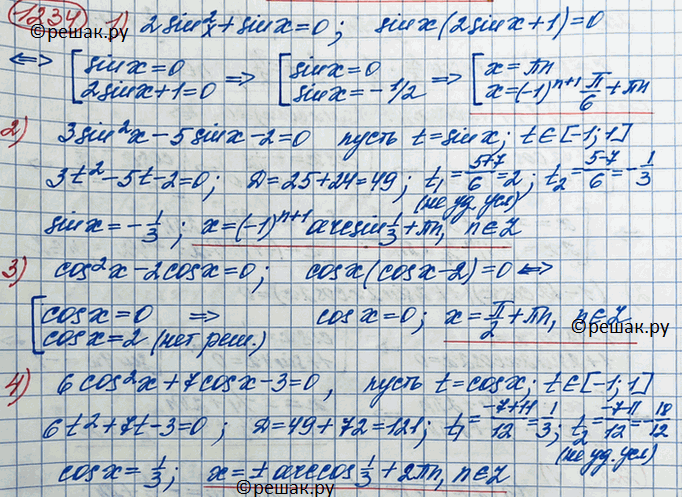 1234 ©решак.ру
1) 2sin²x + sinx = 0; sinx(2sinx+1) = 0
⟺ [ sinx = 0 ⟹ [ sinx = 0 ⟹ [ x = πn
2sinx+1 = 0 sinx = -1/2 x = (-1)ⁿ⁺¹ π/6 + πn
©решак.ру
2) 3sin²x - 5sinx - 2 = 0 пусть t = sinx; t∈[-1;1]
3t² - 5t - 2 = 0; D = 25+24 = 49; t₁ = (5+7)/6 = 2; t₂ = (5-7)/6 = -1/3
(не уд. усл)
sinx = -1/3; x = (-1)ⁿ⁺¹ arcsin 1/3 + πn, n∈Z
3) cos²x - 2cosx = 0; cosx(cosx-2) = 0 ⟺
[ cosx = 0 ⟹ cosx = 0; x = π/2 + πn, n∈Z
cosx = 2 (нет реш.)
©решак.ру
4) 6cos²x + 7cosx - 3 = 0, пусть t = cosx; t∈[-1;1]
6t² + 7t - 3 = 0; D = 49 + 72 = 121; t₁ = (-7+11)/12 = 1/3; t₂ = (-7-11)/12 = -18/12
(не уд. усл)
cosx = 1/3; x = ± arccos 1/3 + 2πn, n∈Z
©решак.ру